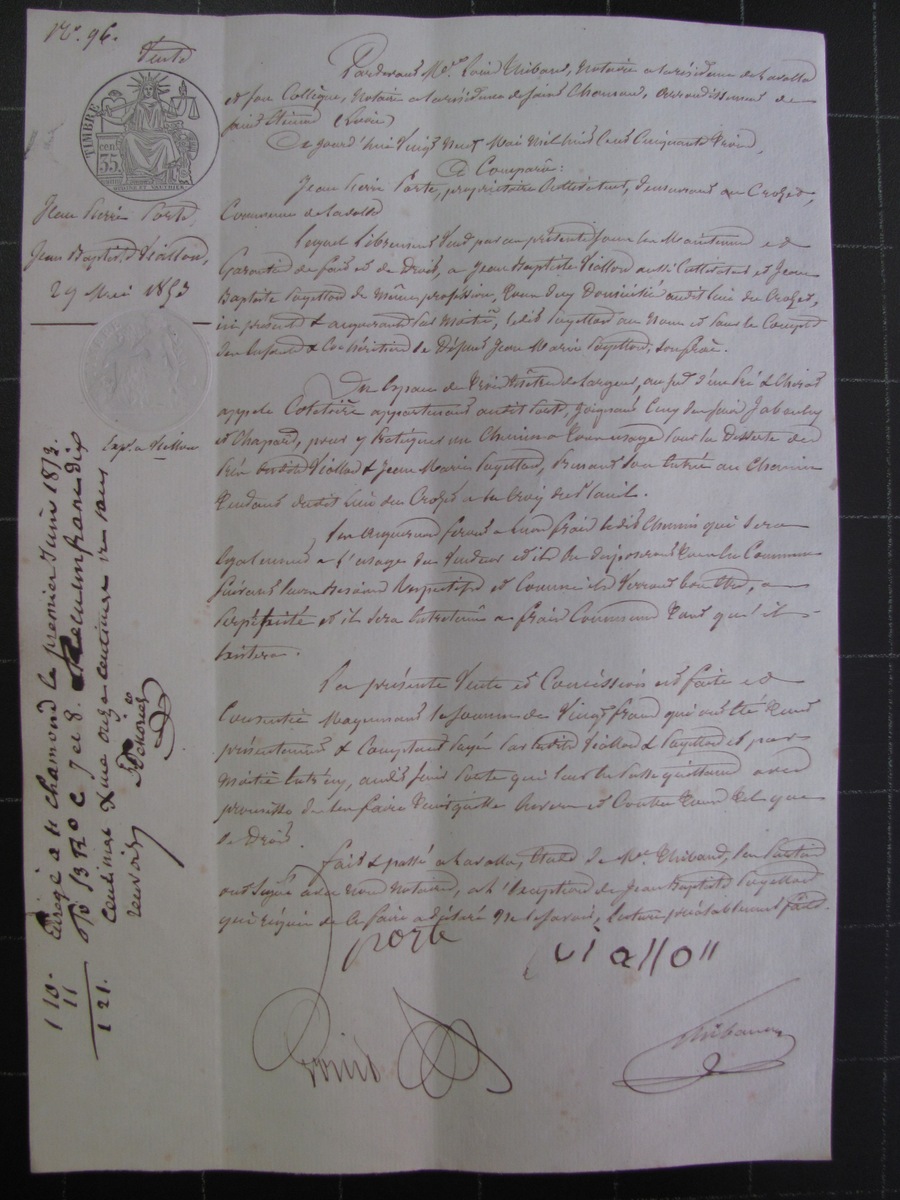 N.° 96.
Vente
TIMBRE
35
Jean Pierre Porte
Jean Baptiste Viallon,
29 Mai 1853
Exp. a Viallon
Pardevant Me. Louis Thibaud, Notaire a la résidence de Lavalla
et son Collègue, Notaire a la résidence de Saint Chamond, arrondissement de
Saint Etienne (Loire)
De jourd'hui Vingt Neuf Mai Mil huit Cent Cinquante Trois,
A Comparu:
Jean Pierre Porte, propriétaire Cultivateur, demeurant au Crozet,
Commune de Lavalla
Lequel librement Vend par ces présentes sous les Maintenue et
Garantie de fait et de Droit, a Jean Baptiste Viallon aussi Cultivateur et Jean
Baptiste Payellon de même profession, Tous deux Domiciliés audit lieu du Crozet,
ici présent & acquérant par moitié, ledit Payellon au nom et pour le Compte
des enfants & Cohéritiers de Défunt Jean Marie Payellon, son frère.
Un Espace de Trois Mètres de largeur, au pré & Chirat
appelé appartenant audit Porte, joignant Ceux des Jabouley
et Chapard, pour y Pratiquer un Chemin a Tous usages pour la Desserte des
Prés Viallon & Jean Marie Payellon, Prenant son entrée au Chemin
Tendant dudit lieu du Crozet a la Croix
Les acquéreurs feront a leurs frais ledit Chemin qui sera
également a l'usage du Vendeur et ils en disposeront Tous en Commun
Suivant leurs Besoins Respectifs et Comme ils Verront bon être, a
Perpétuité et il sera entretenu a frais Communs Tant qu'il
existera.
La présente Vente et Concession est faite et
Consentie Moyennant la Somme de Vingt francs qui ont été Tout
présentement & Comptant payés par lesdits Viallon & Payellon et par
Moitié entr'eux, audit Porte qui leur en passe quittance avec
promesse de les faire Tenir quittes Envers et Contre Tous Tel que
de Droit.
Fait & passé a Lavalla, Etude de Me. Thibaud, les Parties
ont Signé avec nous Notaires, a l'Exception de Jean Baptiste Payellon
qui requis de Ce faire a déclaré ne le Savoir, Lecture préalablement faite.
porte
viallon
Louis
Thibaud
Enrgé a St chamond le premier juin 1853.
fo 13 Vo c 7 et 8. Reçu un franc dix
centimes & une onze centimes
réservés
1 10.
11
1 21.